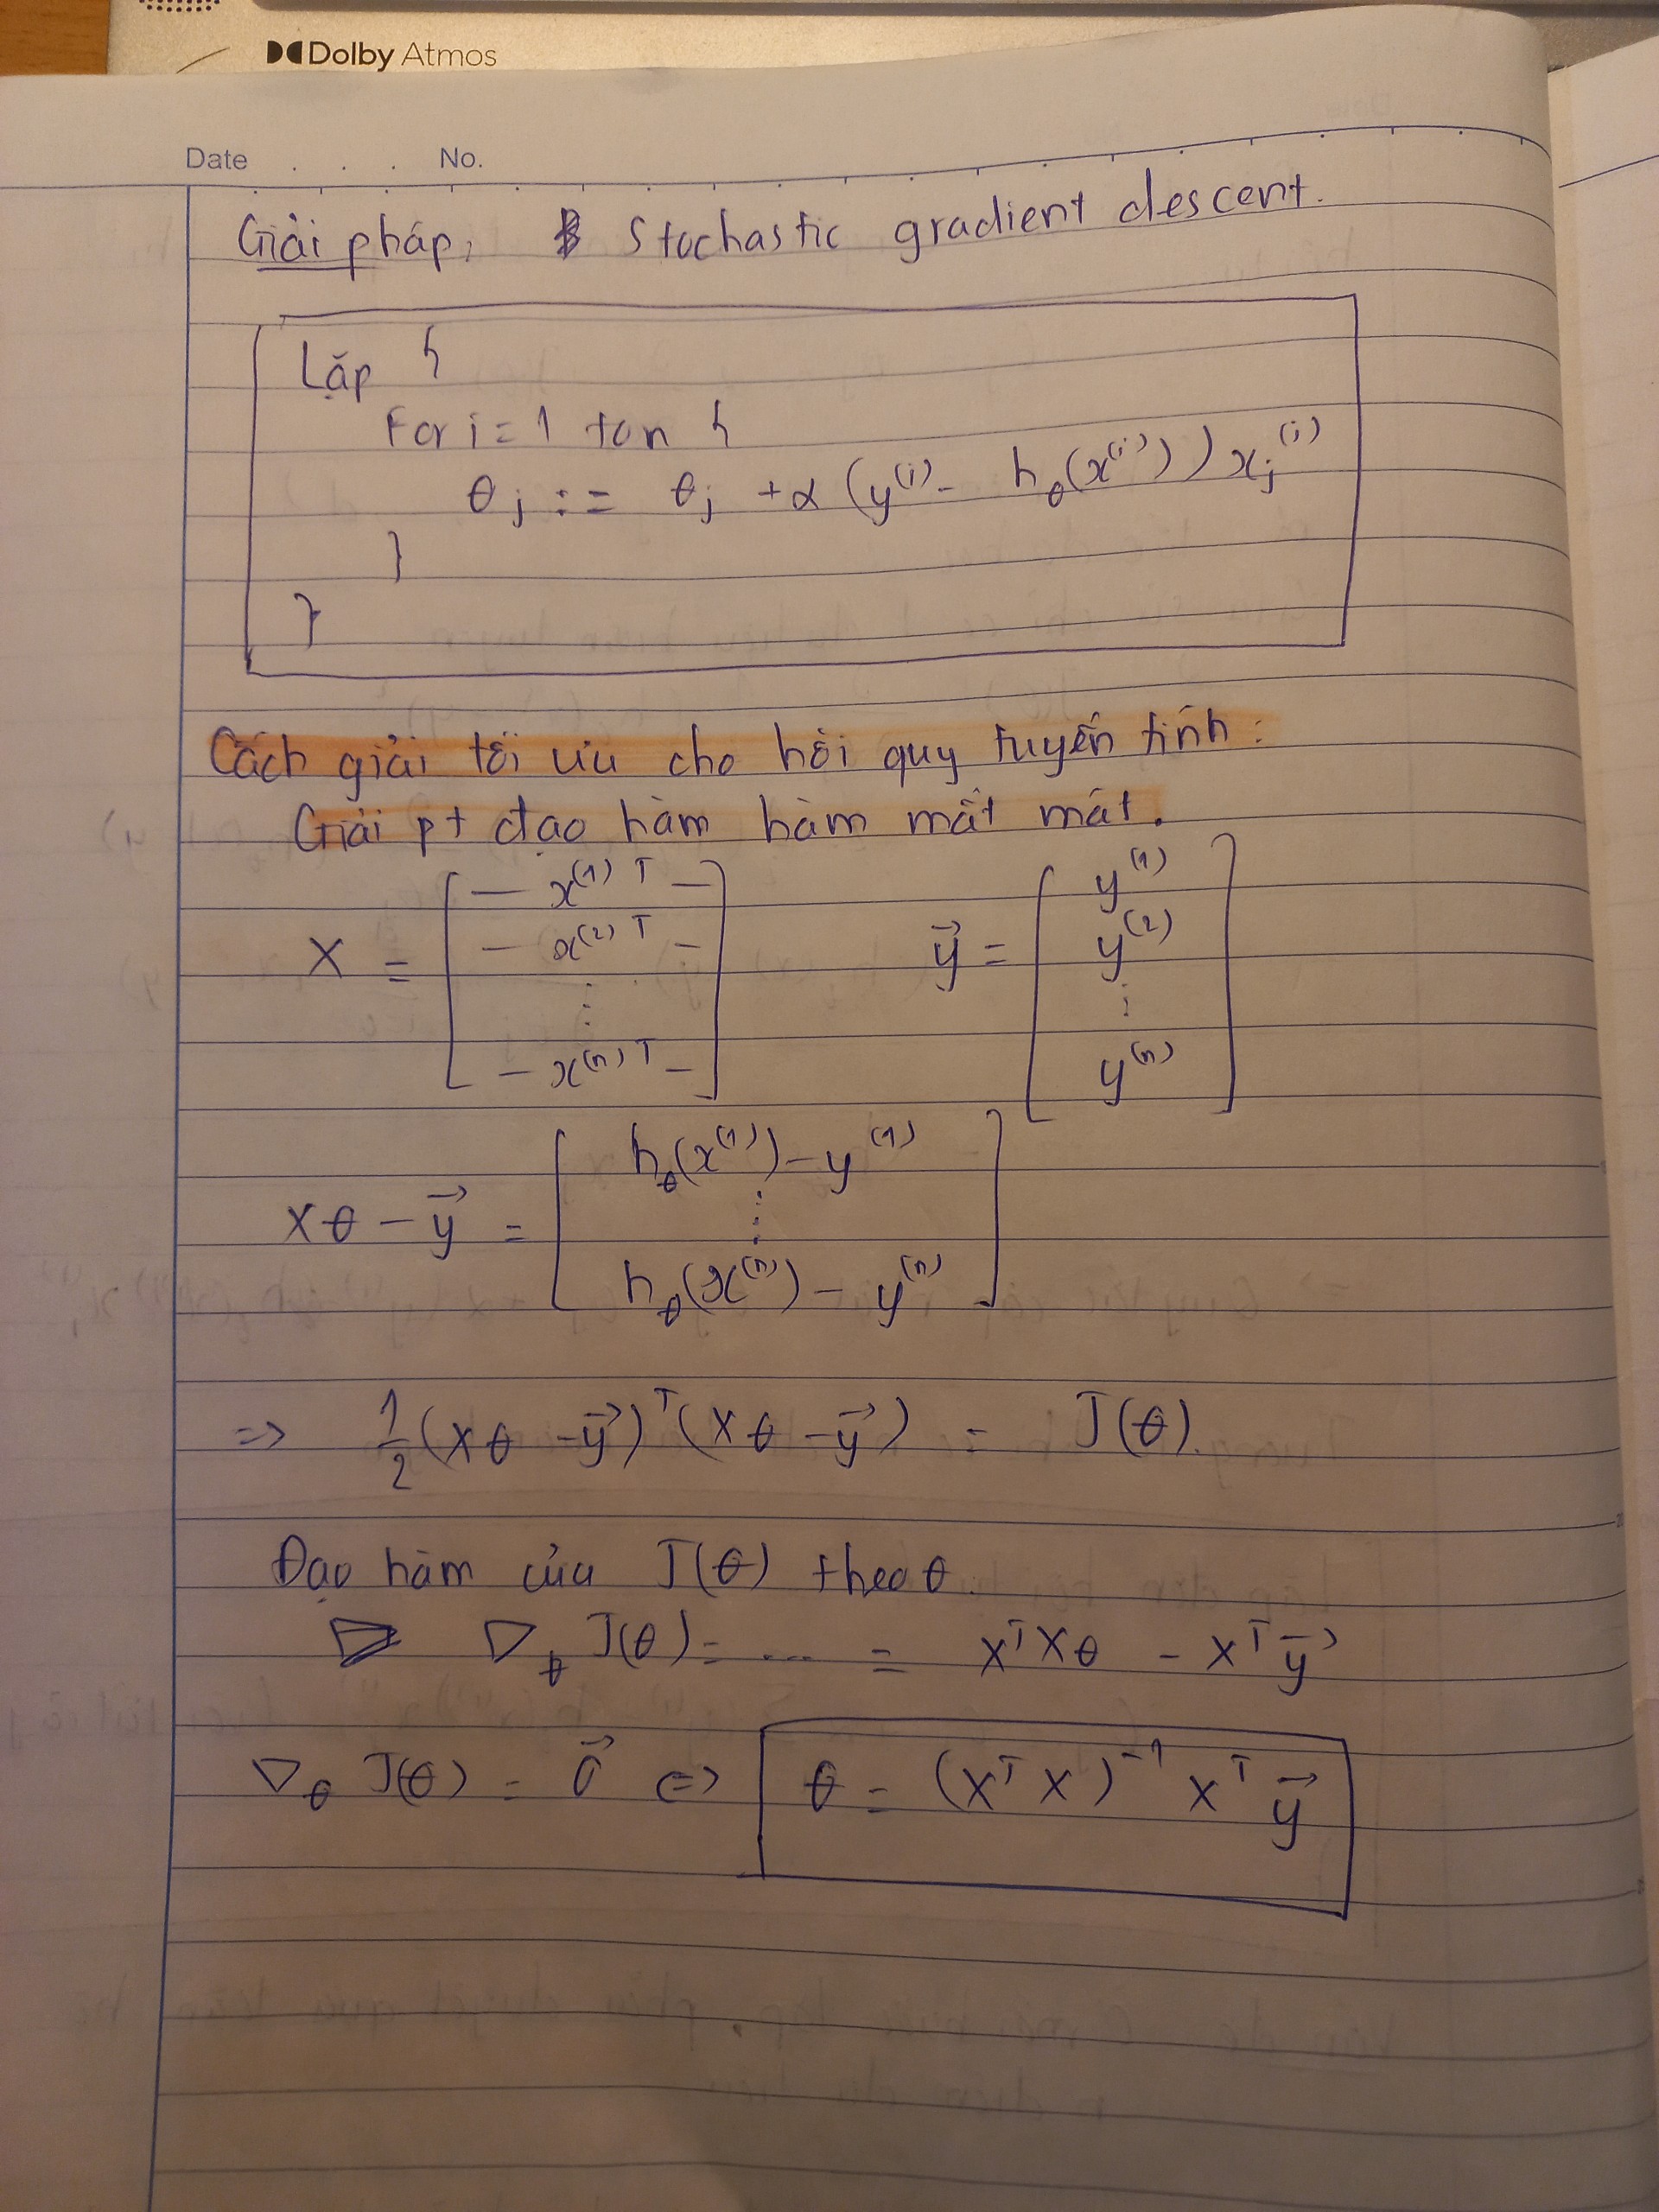 Dolby Atmos
Date . . . No.
Giải pháp: Stochastic gradient descent.
Lặp {
For i = 1 to n {
θj := θj + α (y⁽ⁱ⁾ - hθ(x⁽ⁱ⁾)) xj⁽ⁱ⁾
}
}
Cách giải tối ưu cho hồi quy tuyến tính:
Giải pt đạo hàm hàm mất mát.
X = [ — x⁽¹⁾ᵀ — ; — x⁽²⁾ᵀ — ; ⋮ ; — x⁽ⁿ⁾ᵀ — ] y⃗ = [ y⁽¹⁾ ; y⁽²⁾ ; ⋮ ; y⁽ⁿ⁾ ]
Xθ - y⃗ = [ hθ(x⁽¹⁾) - y⁽¹⁾ ; ⋮ ; hθ(x⁽ⁿ⁾) - y⁽ⁿ⁾ ]
=> 1/2 (Xθ - y⃗)ᵀ (Xθ - y⃗) = J(θ).
Đạo hàm của J(θ) theo θ.
∇θ J(θ) = ... = XᵀXθ - Xᵀy⃗
∇θ J(θ) = 0⃗ <=> θ = (XᵀX)⁻¹ Xᵀ y⃗